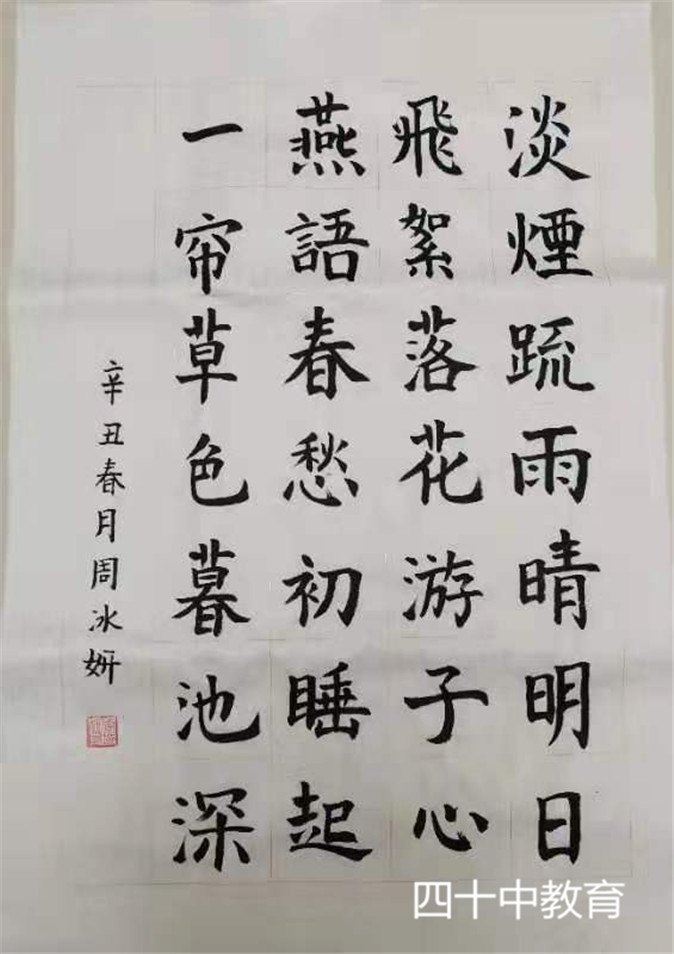 淡煙疏雨晴明日
飛絮落花游子心
燕語春愁初睡起
一帘草色暮池深
辛丑春月周冰妍
四十中教育